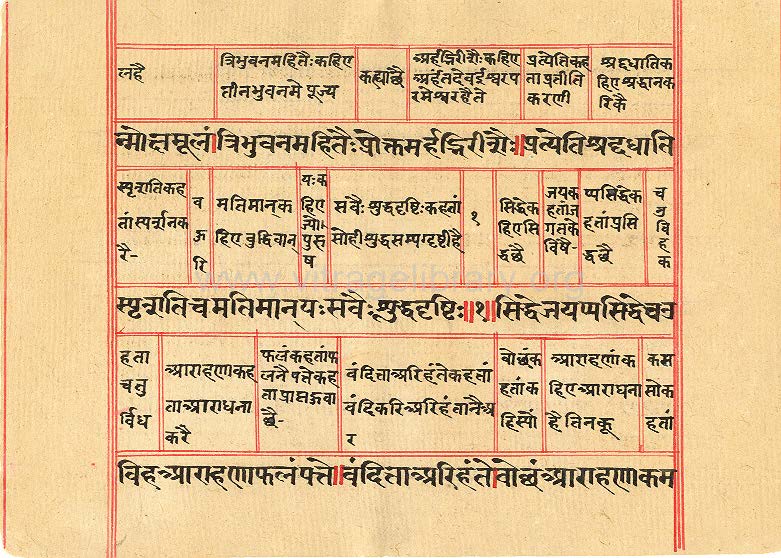 लहै
त्रिभुवनमहितैःकहिए
तीनभुवनमे पूज्य
कह्याछै
अर्हद्भिरीशैःकहिए
अर्हंतदेवईश्वरप
रमेश्वरहैते
प्रत्येतिकह
ताप्रतीति
करणी
श्रद्दधातिक
हिएश्रद्धानक
रिकै
न्मोक्षमूलं॥त्रिभुवनमहितैःप्रोक्तमर्हद्भिरीशैः॥प्रत्येतिश्रद्दधाति
स्पृशतिकह
तांस्पर्शनक
रै-
च
करि
मतिमानक
हिएबुद्धिवान
यःक
हिए
जो
पुरु
ष
सवैःशुद्धदृष्टिःकहतां
सोहीशुद्धसम्यग्दृष्टीहै
१
सिद्धेक
हिएसि
द्धछै
जयक
हतांज
गतकै
विषै-
प्पसिद्धेक
हतांप्रसि
द्धछै
च
उ
विह
क
स्पृशतिचमतिमान्यःसवैःशुद्धदृष्टिः॥१॥सिद्धेजयप्पसिद्धेचउ
हता
चतु
र्विध
आराहणाकह
ताआराधना
करै
फलंकहतांफ
लनैपत्तेकह
ताप्राप्तहूवा
छै-
वंदिताअरिहंतेकहतां
वंदिकरिअरिहंतानैअ
र
वोछंक
हतांक
हिस्यों
आराहणांक
हिएआराधना
हैतिनकू
कम
सोक
हतां
विहआराहणाफलंपत्ते॥वंदिताअरिहंतेवोछंआराहणकम
www.vitragelibrary.org